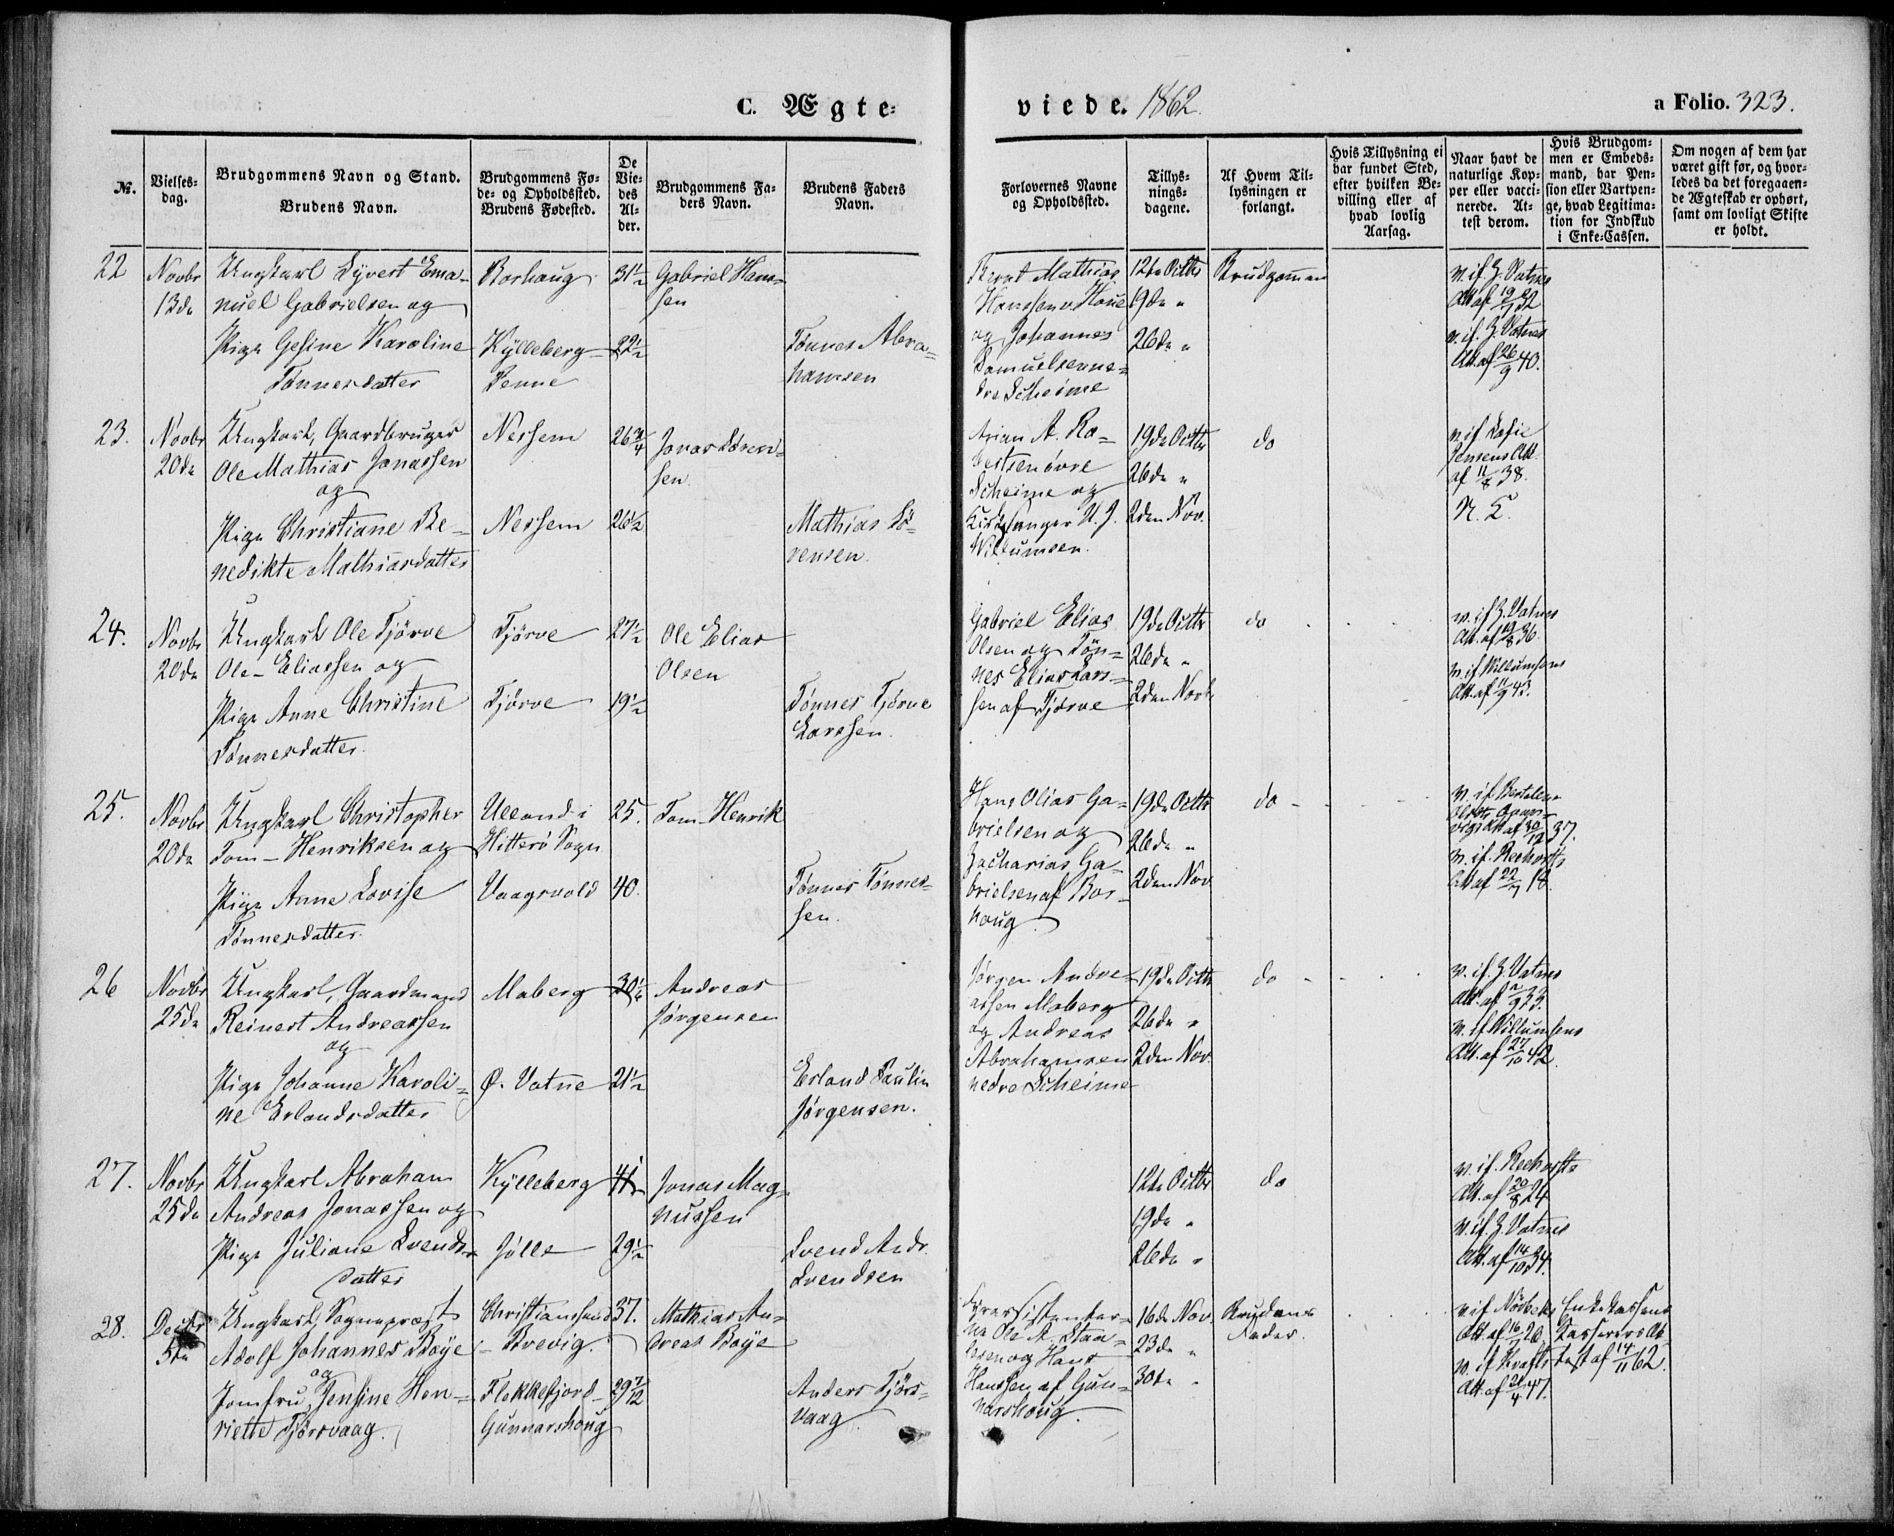 C. Ægte-
viede. 1862.
a Folio. 323.
No.
Vielses-
dag.
Brudgommens Navn og Stand.
Brudens Navn.
Brudgommens Fø-
de- og Opholdssted.
Brudens Fødested.
De
Vie-
des
Al-
der.
Brudgommens Fa-
ders Navn.
Brudens Faders
Navn.
Forlovernes Navne
og Opholdssted.
Tillys-
nings-
dagene.
Af Hvem Til-
lysningen er
forlangt.
Hvis Tillysning ei
har fundet Sted,
efter hvilken Be-
villing eller af
hvad lovlig
Aarsag.
Naar havt de
naturlige Kop-
per eller vacci-
nerede. At-
test derom.
Hvis Brudgom-
men er Embeds-
mand, har Pen-
sion eller Vartpen-
ge, hvad Legitima-
tion for Indskud
i Enke-Cassen.
Om nogen af dem har
været gift før, og hvor-
ledes da det foregaaen-
de Ægteskab er ophørt,
samt om lovligt Skifte
er holdt.
22
Novbr
13de
Ungkarl Syvert Ema-
nuel Gabrielsen og
Pige Gesine Karoline
Tønnesdatter
Borhaug
Kylleberg
31½
22½
Gabriel Han-
sen
Tønnes Abra-
hamsen
Bernt Mathias
Hanssen v. Haue
og Johannes
Samuelsen ne-
dre Scheime
12te Octbr
19de "
26de "
Brudgommen
v. if. Z. Vatnes
Att af 19/9 32
v. if. Z. Vatnes
Att. af 26/9 40.
23.
Novbr
20de
Ungkarl, Gaardbruger
Ole Mathias Jonassen
og
Pige Christiane Be-
nedikte Mathiasdatter
Nessem
Nessem
26¾
26½
Jonas Søren-
sen.
Mathias Sø-
rensen.
Arian A. Ro-
bertsen øvre
Scheime og
Kirkesanger N. J.
Willumsen.
19de Octbr
26de "
2den Nov.
do
v. if. Sofie
Jensens Att.
af 11/8 38.
N. K.
24.
Novbr
20de
Ungkarl Ole Tjørve
Ole-Eliassen og
Pige Anne Christine
Tønnesdatter.
Tjørve
Tjørve
27½
19½
Ole Elias
Olsen
Tønnes Tjørve
Larssen.
Gabriel Elias
Olsen og Tøn-
nes Elias Lars-
sen af Tjørve
19de Octbr
26de "
2den Novb
do
v. if. Z. Vatnes
Att. af 19/8 36.
v. if. Willumsens
Att. af 11/9 43.
25.
Novbr
20de
Ungkarl Christopher
Tom-Henriksen og
Pige Anne Lovise
Tønnesdatter.
Ulland i
Hitterø Sogn
Vaagsvold
25.
40.
Tom-Henrik
Tønnes Tønnes-
sen.
Hans Olias Ga-
brielsen og
Zacharias Ga-
brielsen af Bor-
houg
19de Octbr
26de "
2den Nov.
do
37.
v. if. Reehorsts
Att af 22/7 18.
26
Novbr
25de
Ungkarl, Gaardmand
Reinert Andreassen
og
Pige Johanne Karoli-
ne Erlandsdatter
Maberg
Ø. Vatne
21½
Andreas
Jørgensen
Erland Paulin
Jørgensen.
Jørgen Andre-
assen Maberg
og Andreas
Abrahamsen
nedre Scheime
19de Octbr
26de "
2den Nov.
do
v. if. Z. Vatnes
Att. af 2/9 33.
v. if. Willumsens
Att. af 27/10 42.
27.
Novbr
25de
Ungkarl Abraham
Andreas Jonassen og
Pige Juliane Svends-
datter
Kylleberg
Jølle
29½
Jonas Mag-
nussen
Svend Andr.
Svendsen
12te Octbr
19de "
26de "
do
v. if. Reehorsts
Att. af 20/8 24
v. if. Z. Vatnes
Att. af 14/10 34.
28.
Decbr
5te
Ungkarl, Sognepræst
Adolf Johannes Boye
og
Jomfru, Jensine Hen-
riette Tjørsvaag.
Christianssand
- Brevig.
Flekkefjord-
Gunnarshoug
37.
29 7/12
Mathias An-
dreas Boye
Anders Tjørs-
vaag.
Fyrassistenter-
ne Ole A. Stau-
lesen og Hans
Hanssen af Gun-
narshoug.
16de Nov.
23de "
30te "
Brudens
Fader.
v. if. Nørbeks
Att. af 16/7 26.
v. if. Krafts
Att. af 21/4 47.
Enkekassens
Kasserers At-
test af 14/11 62.